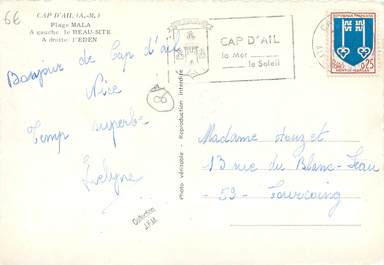 66
CAP D'AIL (A.-M.)
Plage MALA
A gauche le BEAU-SITE
A droite: l'EDEN
Bonjour de Cap d'ail
Nice
Temp superbe
Evelyne
06
Photo véritable - Reproduction interdite
Collection
J.F.M.
CAP D'AIL
la Mer
le Soleil
REPUBLIQUE FRANÇAISE
0,25
MONT-DE-MARSAN
Madame
13 rue du Blanc-Seau
-59- Tourcoing